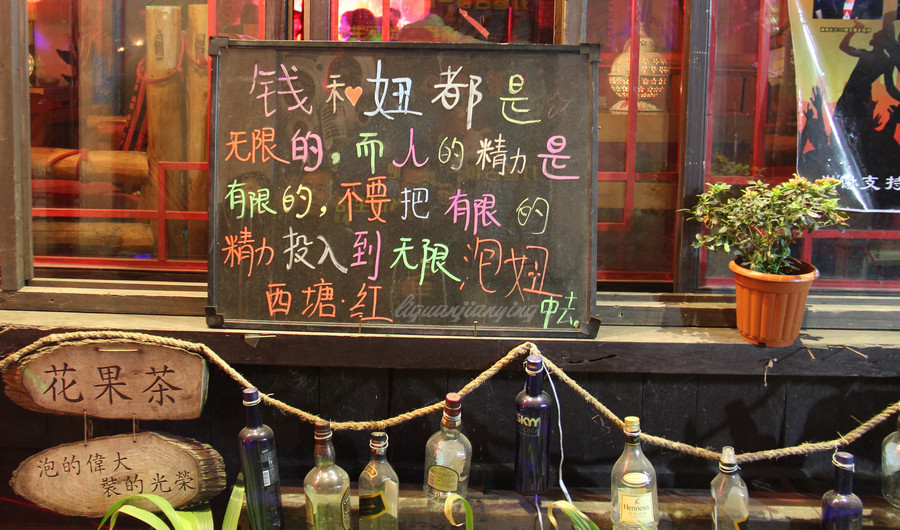 钱和妞都是
无限的，而人的精力是
有限的，不要把有限的
精力投入到无限泡妞
中去。
西塘·红
liquanjianying
花果茶
泡的偉大
裝的光榮
SKYY
Hennessy
支持